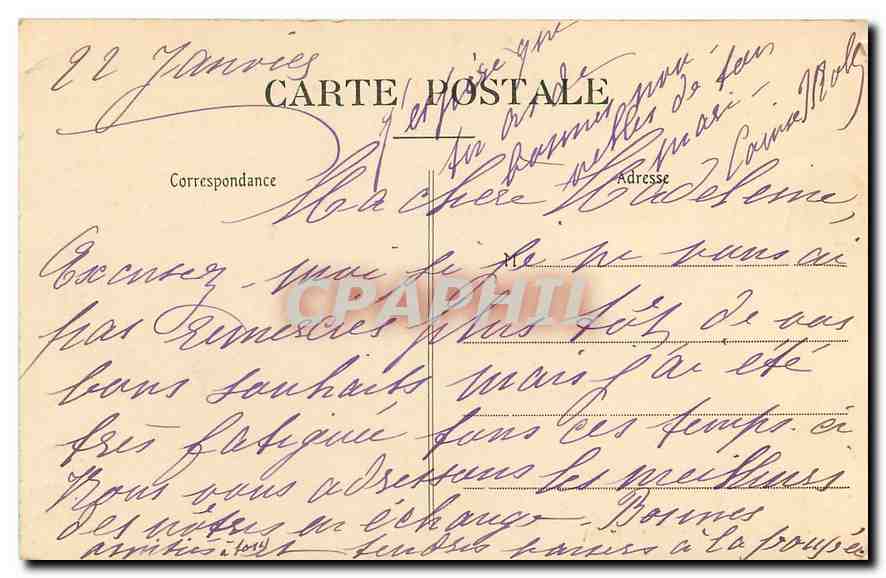 22 Janvier
CARTE POSTALE
Correspondance
Adresse
M
Ma chère Madeleine,
Excusez-moi si je ne vous ai
pas remerciés plus tôt de vos
bons souhaits, mais j'ai été
très fatiguée tous ces temps-ci
Nous vous adressons les meilleurs
des nôtres en échange. Bonnes
amitiés à tous et tendres baisers à la poupée
j'espère que
tu as de
bonnes nou-
velles de ton
mari -
CPAPHIL